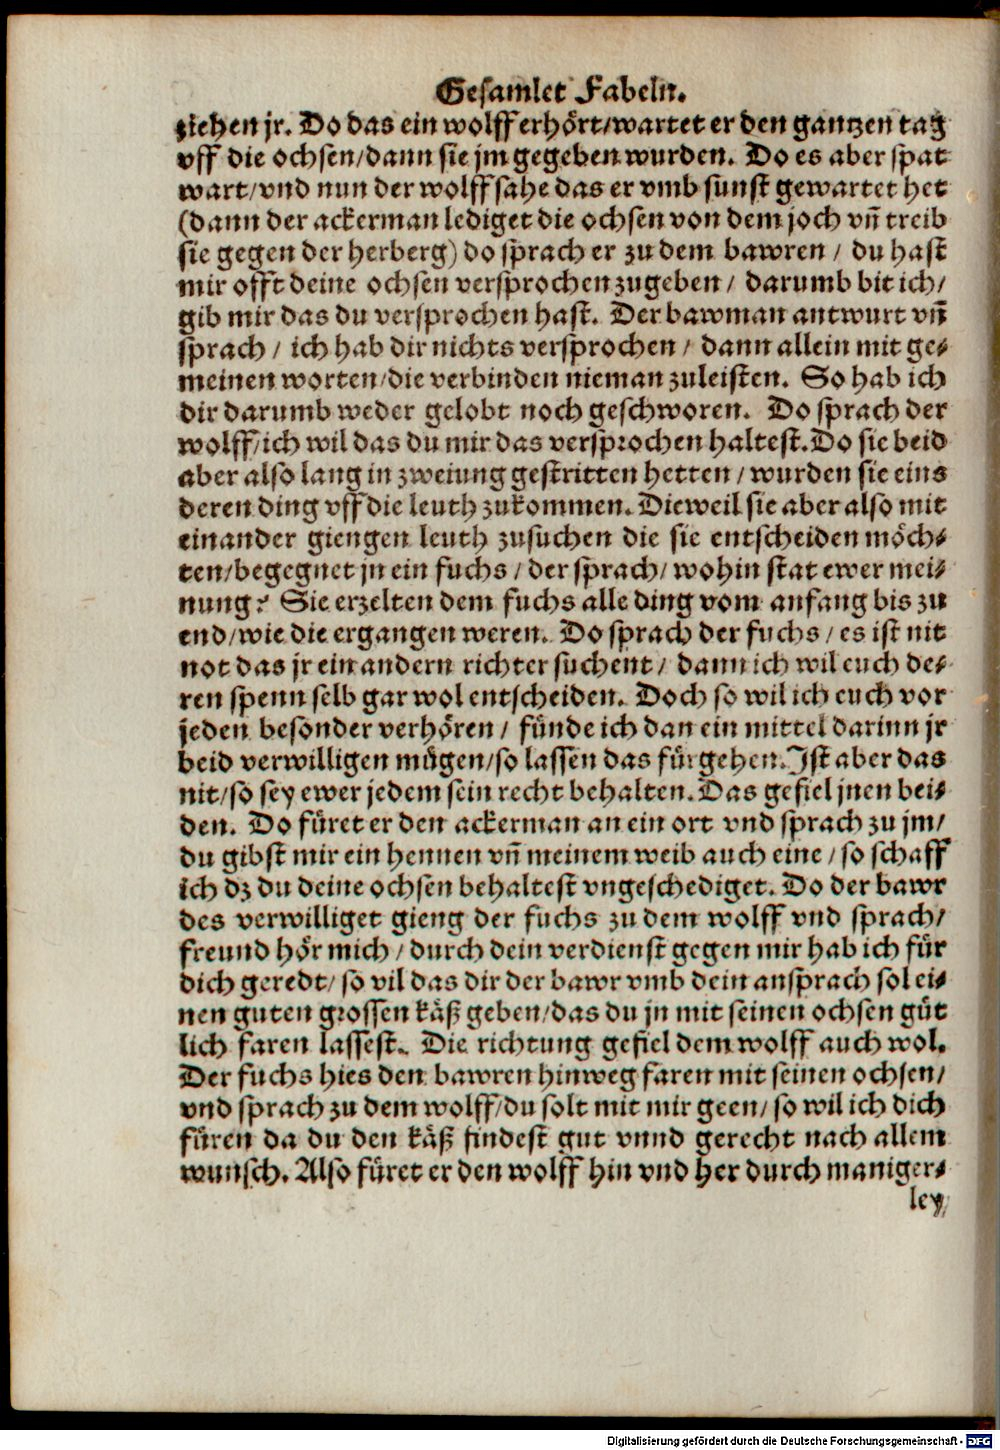 Gesamlet Fabeln.
ziehen jr. Do das ein wolff erhört/wartet er den gantzen tag
vff die ochsen/dann sie jm gegeben wurden. Do es aber spat
wart/vnd nun der wolff sahe das er vmb sunst gewartet het
(dann der ackerman lediget die ochsen von dem joch vñ treib
sie gegen der herberg) do sprach er zu dem bawren / du hast
mir offt deine ochsen versprochen zugeben / darumb bit ich/
gib mir das du versprochen hast. Der bawman antwurt vñ
sprach / ich hab dir nichts versprochen / dann allein mit ge⸗
meinen worten/die verbinden nieman zuleisten. So hab ich
dir darumb weder gelobt noch geschworen. Do sprach der
wolff/ich wil das du mir das versprochen haltest. Do sie beid
aber also lang in zweiung gestritten hetten / wurden sie eins
deren ding vff die leuth zukommen. Dieweil sie aber also mit
einander giengen leuth zusuchen die sie entscheiden möch⸗
ten/begegnet jn ein fuchs / der sprach/ wohin stat ewer mei⸗
nung? Sie erzelten dem fuchs alle ding vom anfang bis zu
end/wie die ergangen weren. Do sprach der fuchs / es ist nit
not das jr ein andern richter suchent / dann ich wil euch de⸗
ren spenn selb gar wol entscheiden. Doch so wil ich euch vor
jeden besonder verhören / fünde ich dan ein mittel darinn jr
beid verwilligen mügen/so lassen das für gehen. Ist aber das
nit/so sey ewer jedem sein recht behalten. Das gefiel jnen bei⸗
den. Do füret er den ackerman an ein ort vnd sprach zu jm/
du gibst mir ein hennen vñ meinem weib auch eine / so schaff
ich dz du deine ochsen behaltest vngeschediget. Do der bawr
des verwilliget gieng der fuchs zu dem wolff vnd sprach/
freund hör mich / durch dein verdienst gegen mir hab ich für
dich geredt/ so vil das dir der bawr vmb dein ansprach sol ei⸗
nen guten grossen käß geben/das du jn mit seinen ochsen güt
lich faren lassest. Die richtung gefiel dem wolff auch wol.
Der fuchs hies den bawren hinweg faren mit seinen ochsen/
vnd sprach zu dem wolff/du solt mit mir geen/ so wil ich dich
füren da du den käß findest gut vnnd gerecht nach allem
wunsch. Also füret er den wolff hin vnd her durch maniger⸗
ley
Digitalisierung gefördert durch die Deutsche Forschungsgemeinschaft - DFG